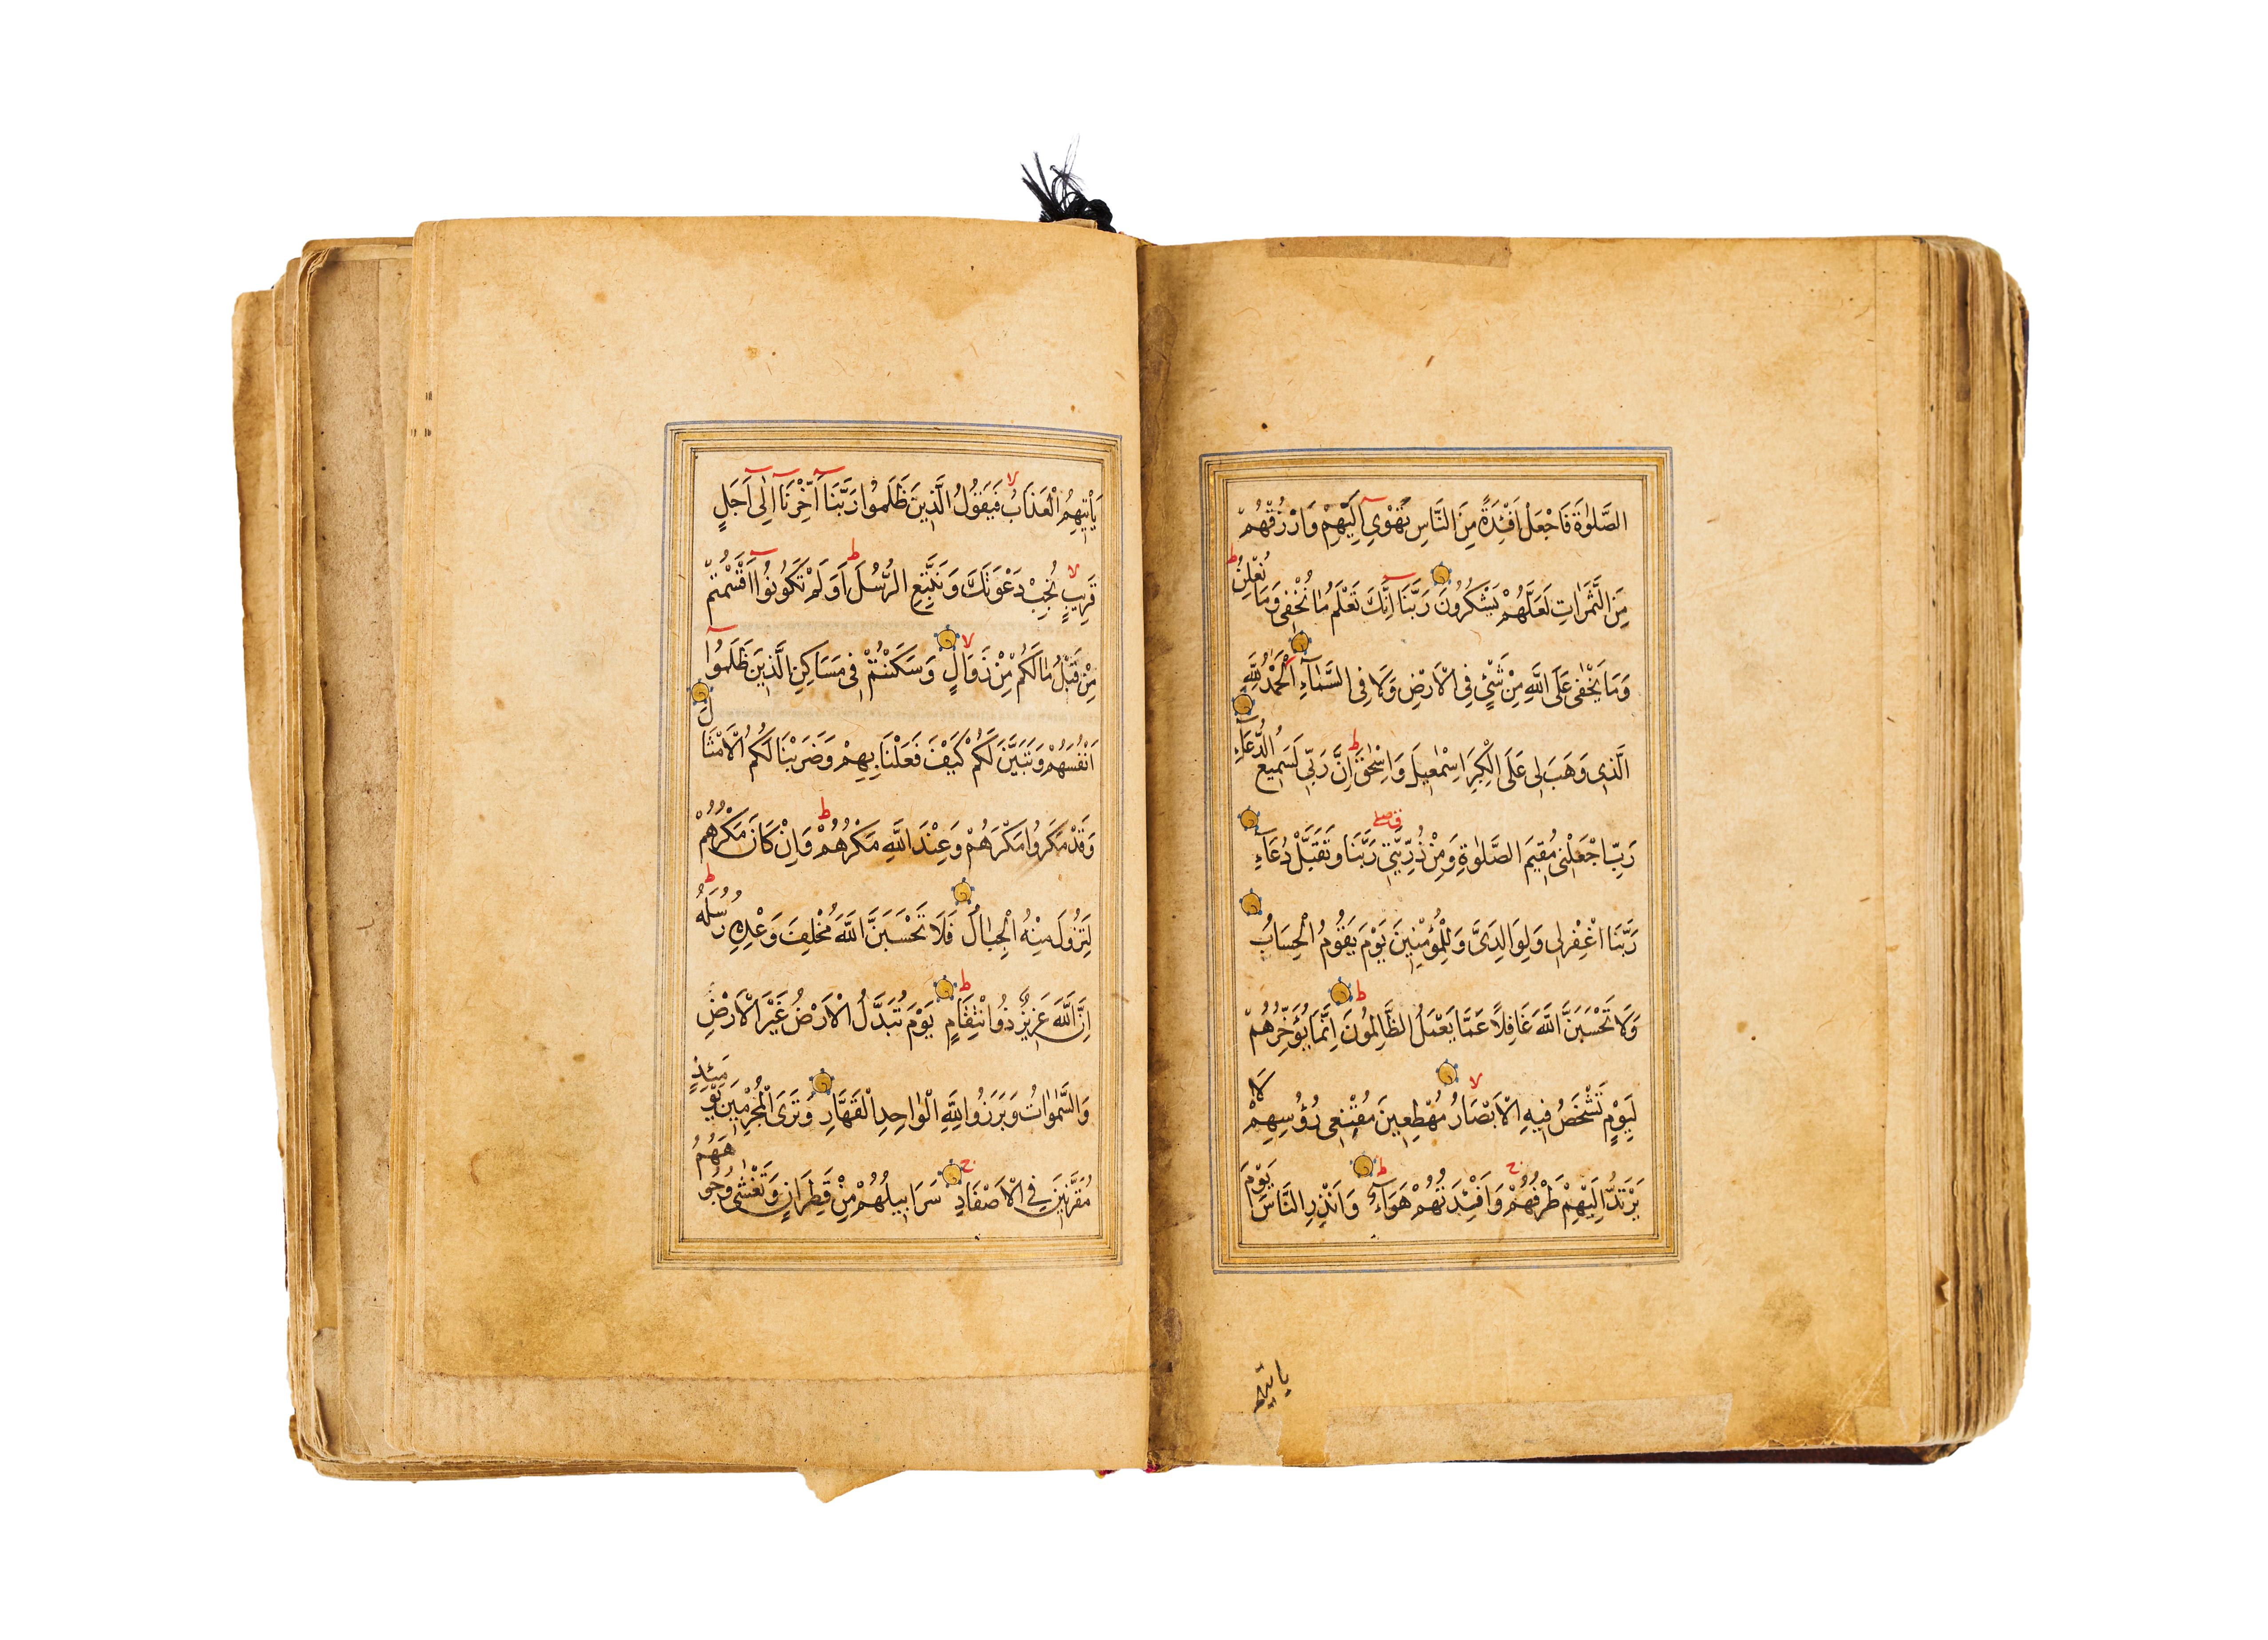 الصَّلٰوةَ فَاجْعَلْ اَفْئِدَةً مِنَ النَّاسِ تَهْوِي اِلَيْهِمْ وَارْزُقْهُمْ
مِنَ الثَّمَرَاتِ لَعَلَّهُمْ يَشْكُرُونَ رَبَّنَا اِنَّكَ تَعْلَمُ مَا نُخْفِي وَمَا نُعْلِنُ ط
وَمَا يَخْفٰى عَلَى اللّٰهِ مِنْ شَيْءٍ فِي الْاَرْضِ وَلَا فِي السَّمَاءِ اَلْحَمْدُ لِلّٰهِ
الَّذِي وَهَبَ لِي عَلَى الْكِبَرِ اِسْمٰعِيلَ وَاِسْحٰقَ ط اِنَّ رَبِّي لَسَمِيعُ الدُّعَاءِ
رَبِّ اجْعَلْنِي مُقِيمَ الصَّلٰوةِ وَمِنْ ذُرِّيَّتِي رَبَّنَا وَتَقَبَّلْ دُعَاءِ
رَبَّنَا اغْفِرْ لِي وَلِوَالِدَيَّ وَلِلْمُؤْمِنِينَ يَوْمَ يَقُومُ الْحِسَابُ
وَلَا تَحْسَبَنَّ اللّٰهَ غَافِلًا عَمَّا يَعْمَلُ الظَّالِمُونَ ط اِنَّمَا يُؤَخِّرُهُمْ
لِيَوْمٍ تَشْخَصُ فِيهِ الْاَبْصَارُ لا مُهْطِعِينَ مُقْنِعِي رُؤُسِهِمْ لَا
يَرْتَدُّ اِلَيْهِمْ طَرْفُهُمْ ج وَاَفْئِدَتُهُمْ هَوَاءٌ ط وَاَنْذِرِ النَّاسَ يَوْمَ
ياتيهم
يَأْتِيهِمُ الْعَذَابُ لا فَيَقُولُ الَّذِينَ ظَلَمُوا رَبَّنَا اَخِّرْنَا اِلٰى اَجَلٍ
قَرِيبٍ لا نُجِبْ دَعْوَتَكَ وَنَتَّبِعِ الرُّسُلَ ط اَوَلَمْ تَكُونُوا اَقْسَمْتُمْ
مِنْ قَبْلُ مَا لَكُمْ مِنْ زَوَالٍ لا وَسَكَنْتُمْ فِي مَسَاكِنِ الَّذِينَ ظَلَمُوا
اَنْفُسَهُمْ وَتَبَيَّنَ لَكُمْ كَيْفَ فَعَلْنَا بِهِمْ وَضَرَبْنَا لَكُمُ الْاَمْثَالَ
وَقَدْ مَكَرُوا مَكْرَهُمْ وَعِنْدَ اللّٰهِ مَكْرُهُمْ ط وَاِنْ كَانَ مَكْرُهُمْ
لِتَزُولَ مِنْهُ الْجِبَالُ فَلَا تَحْسَبَنَّ اللّٰهَ مُخْلِفَ وَعْدِهِ رُسُلَهُ ط
اِنَّ اللّٰهَ عَزِيزٌ ذُو انْتِقَامٍ ط يَوْمَ تُبَدَّلُ الْاَرْضُ غَيْرَ الْاَرْضِ
وَالسَّمٰوَاتُ وَبَرَزُوا لِلّٰهِ الْوَاحِدِ الْقَهَّارِ وَتَرَى الْمُجْرِمِينَ يَوْمَئِذٍ
مُقَرَّنِينَ فِي الْاَصْفَادِ ج سَرَابِيلُهُمْ مِنْ قَطِرَانٍ وَتَغْشٰى وُجُوهَهُمُ